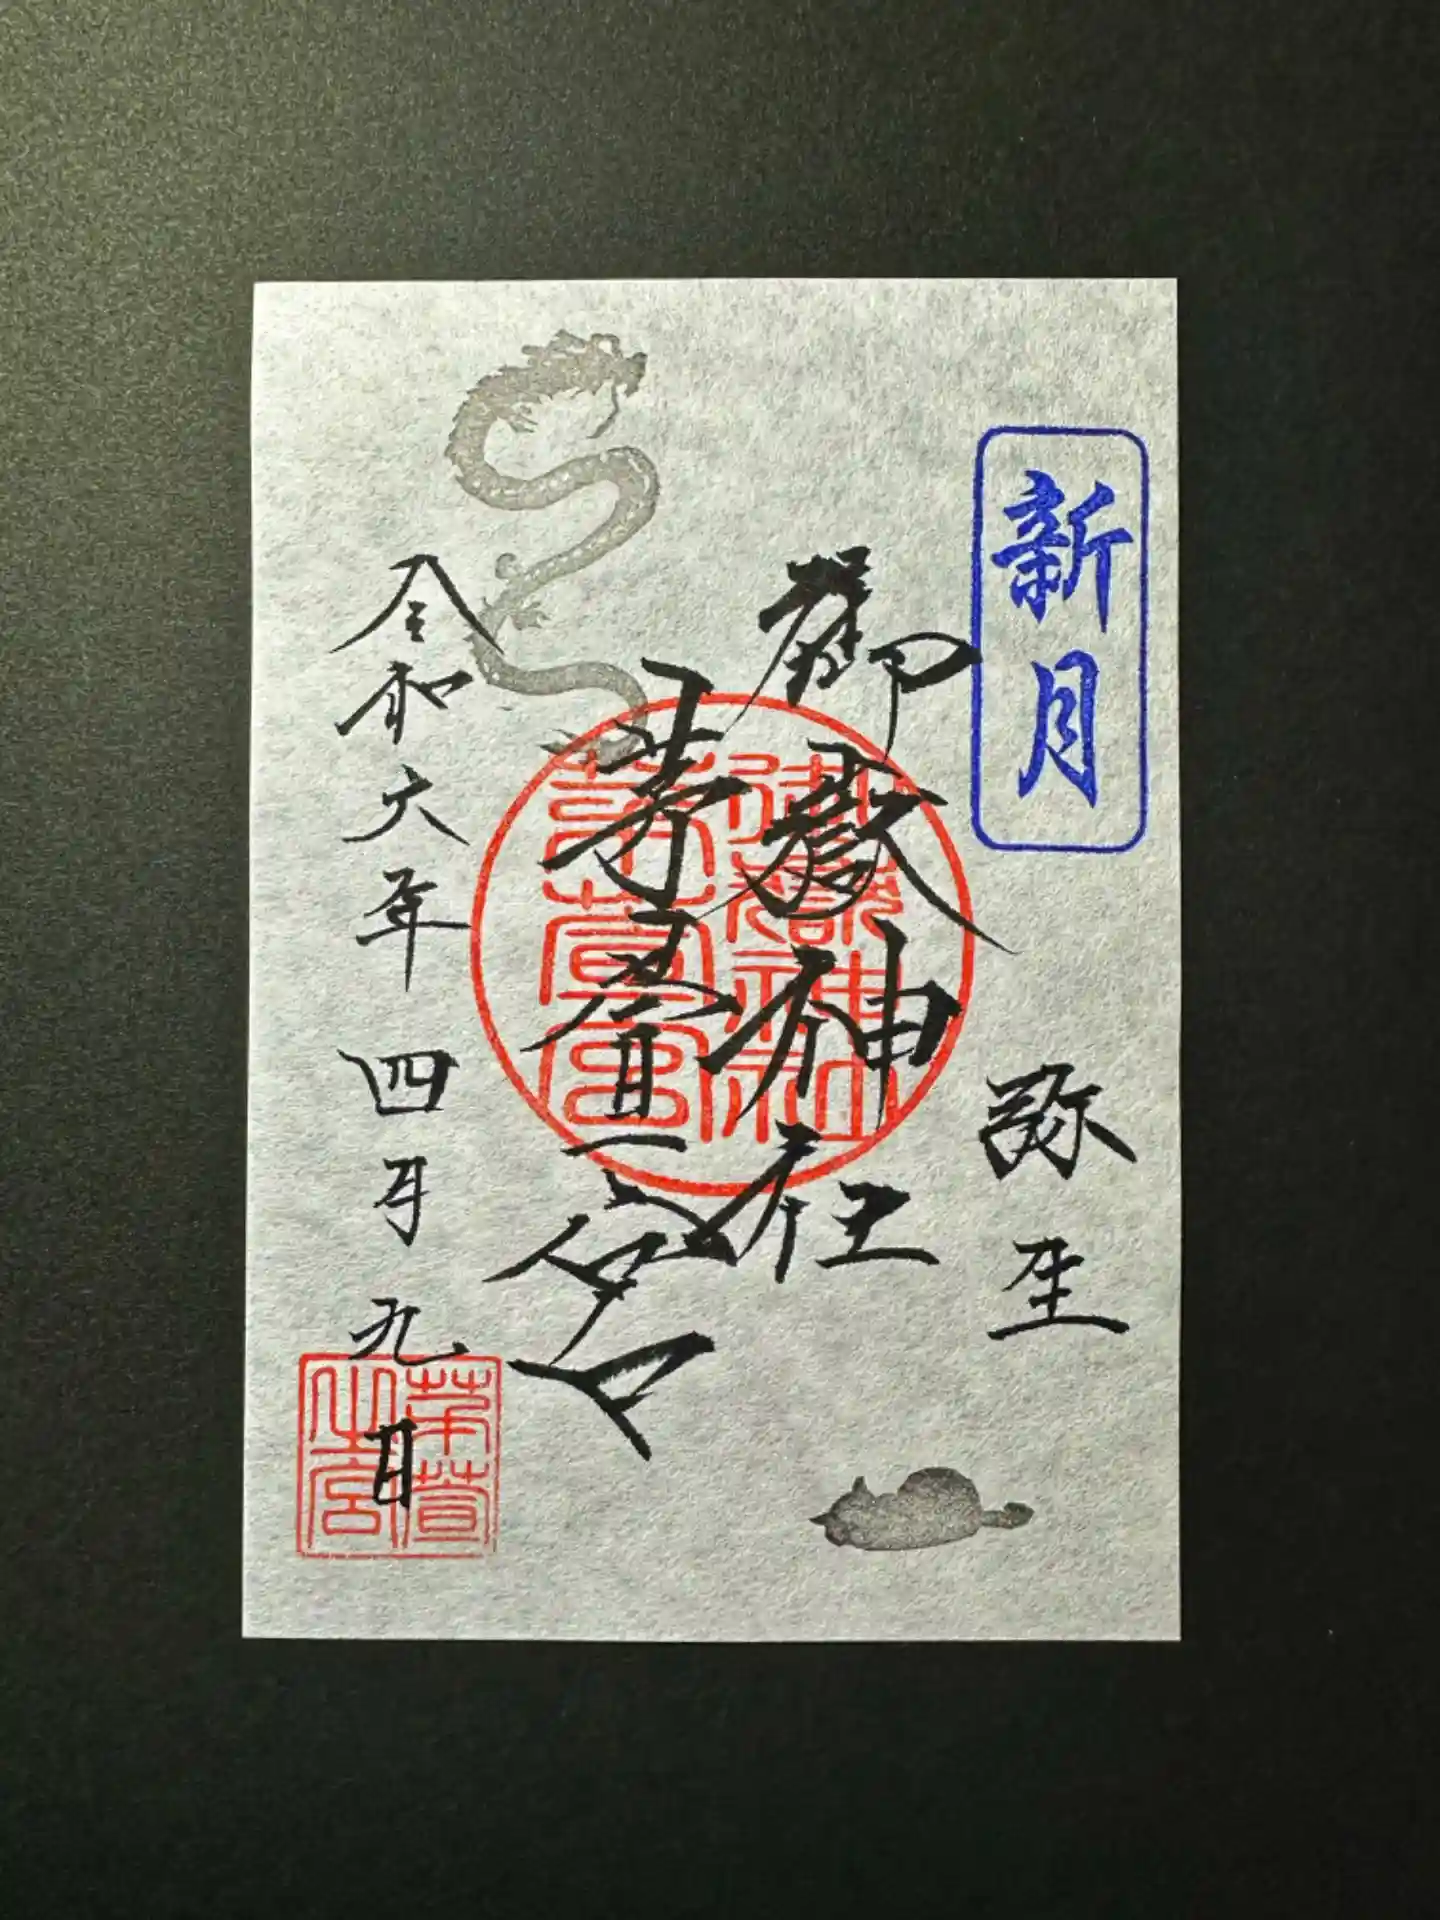 新月
弥生
御嶽神社
茅萱宮
令和六年四月九日
御嶽神社
茅萱宮
茅萱
之宮